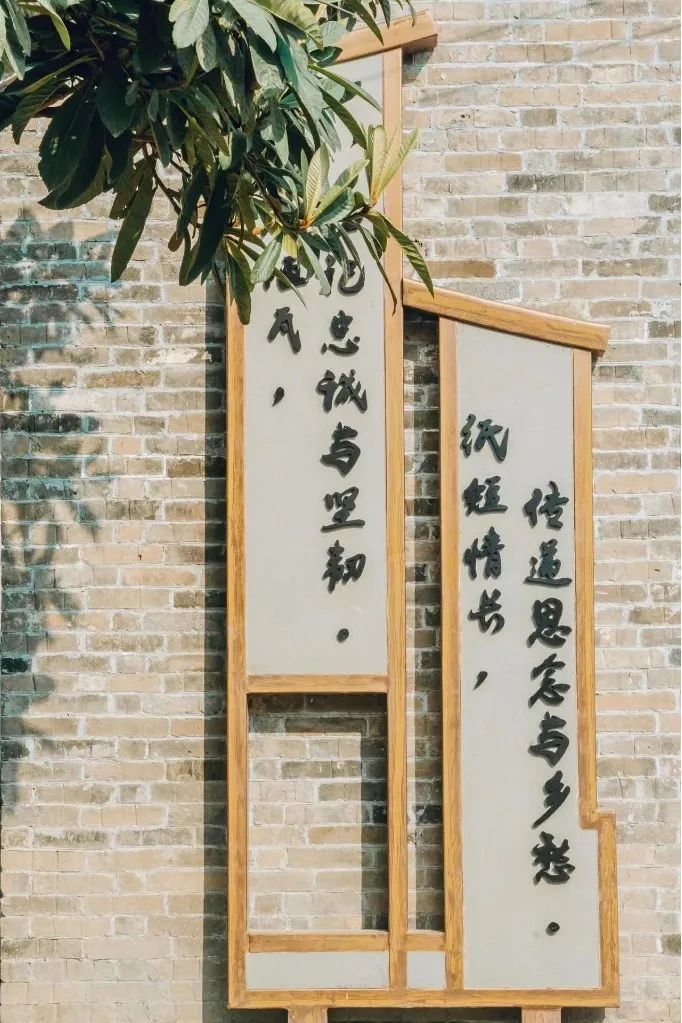 瓦，
忠诚与坚韧。
纸短情长，
传道思念与乡愁。